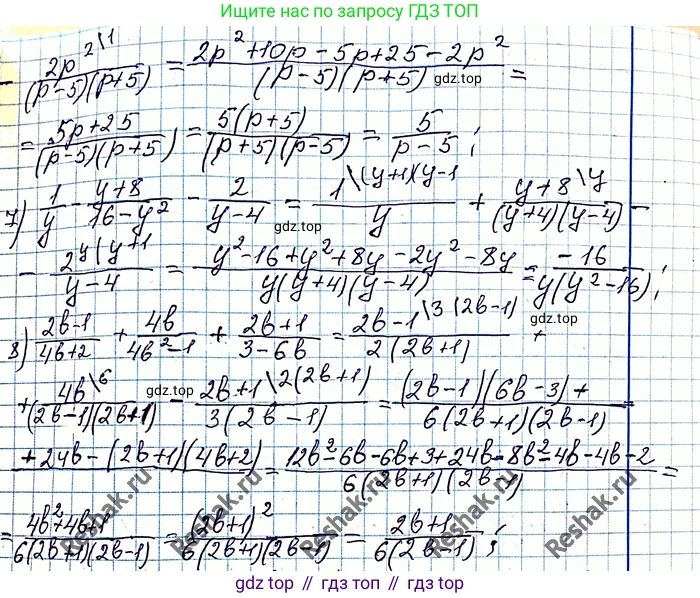 Ищите нас по запросу ГДЗ ТОП
- 2p^2\1/((p-5)(p+5)) = (2p^2+10p-5p+25-2p^2)/((p-5)(p+5)) =
= (5p+25)/((p-5)(p+5)) = 5(p+5)/((p+5)(p-5)) = 5/(p-5);
7) 1/y - (y+8)/(16-y^2) - 2/(y-4) = 1\(y+4)(y-4)/y + (y+8\y)/((y+4)(y-4)) -
- 2y(y+4)/(y-4) = (y^2-16+y^2+8y-2y^2-8y)/(y(y+4)(y-4)) = -16/(y(y^2-16));
8) (2b-1)/(4b+2) + 4b/(4b^2-1) + (2b+1)/(3-6b) = (2b-1\3(2b-1))/(2(2b+1)) +
+ 4b\6/((2b-1)(2b+1)) - (2b+1\2(2b+1))/(3(2b-1)) = (2b-1)(6b-3)+/(6(2b+1)(2b-1))
+24b-(2b+1)(4b+2) = (12b^2-6b-6b+3+24b-8b^2-4b-4b-2)/(6(2b+1)(2b-1)) =
= (4b^2+4b+1)/(6(2b+1)(2b-1)) = (2b+1)^2/(6(2b+1)(2b-1)) = (2b+1)/(6(2b-1));
gdz.top
gdz.top
gdz.top
gdz.top
Reshak.ru
Reshak.ru
Reshak.ru
Reshak.ru
gdz top // гдз топ // gdz.top